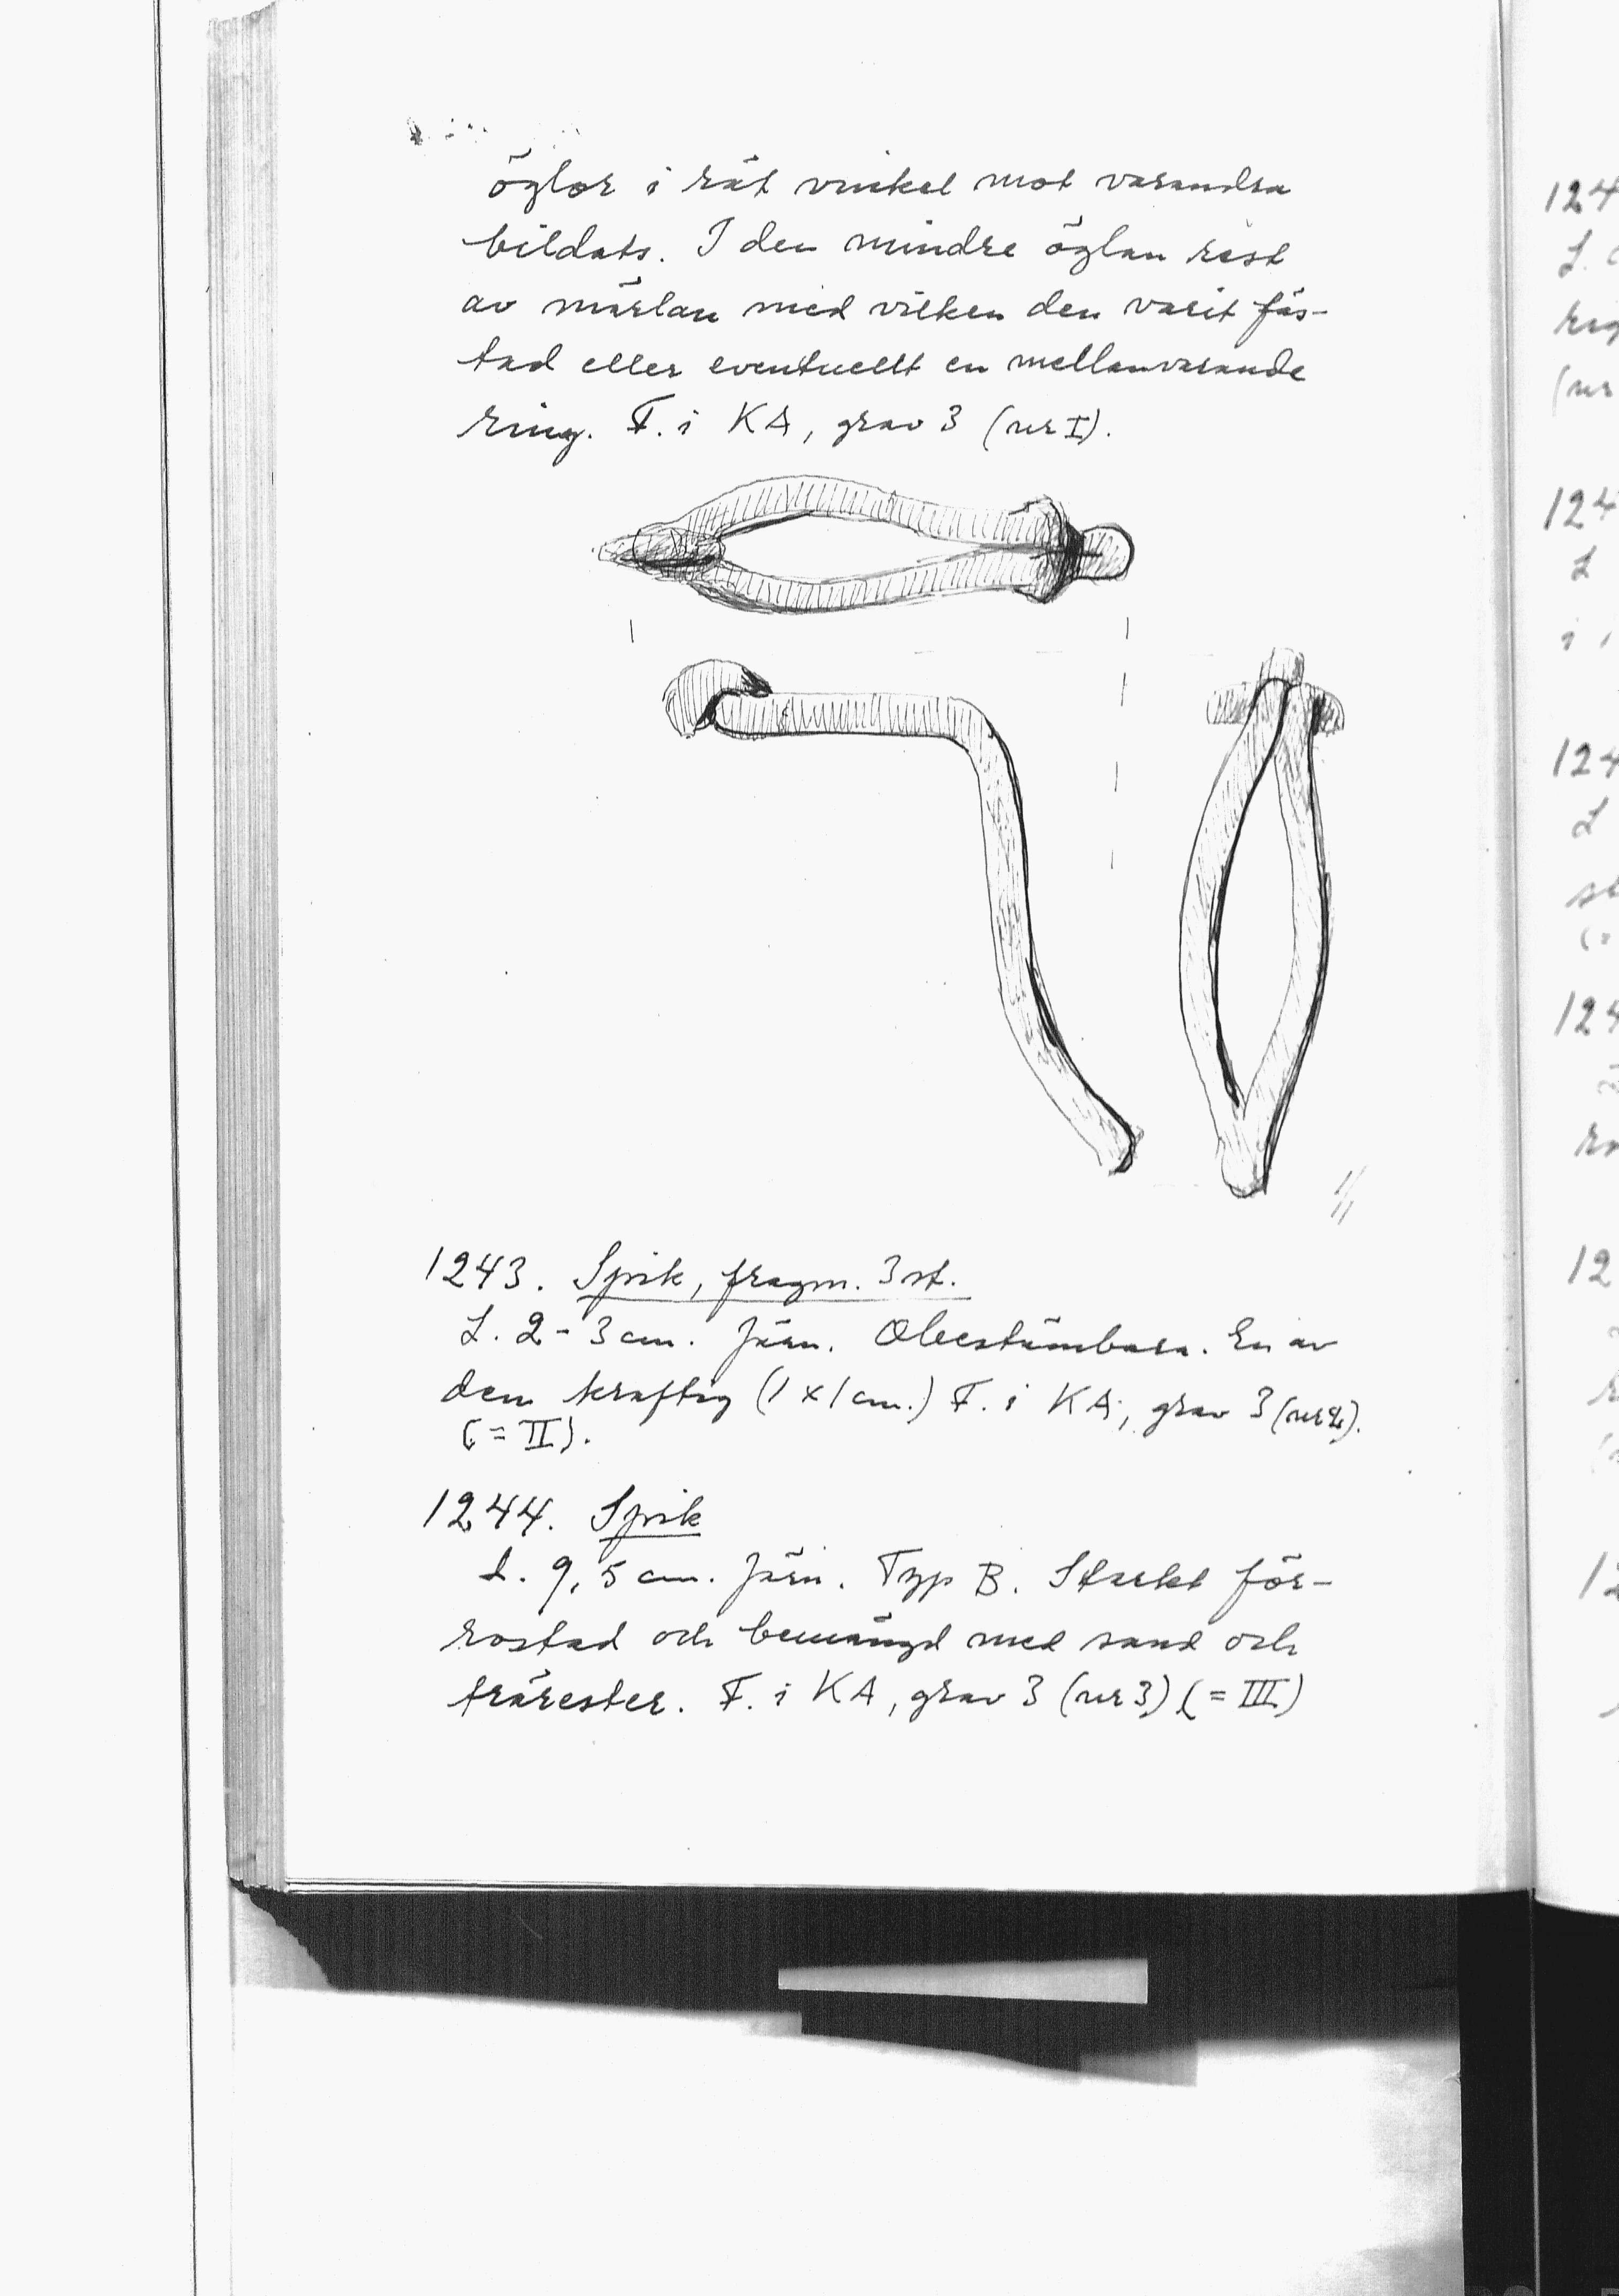 öglor i rät vinkel mot varandra
bildats. I den mindre öglan rest
av märlan med vilken den varit fäs-
tad eller eventuellt en mellanvarande
ring. F. i KA, grav 3 (nr I).
1/1
1243. Spik, fragm. 3 st.
L. 2-3 cm. Järn. Obestämbara. En av
dem kraftig (1 x 1 cm.) F. i KA, grav 3 (nr 2).
(= II).
1244. Spik
L. 9,5 cm. Järn. Typ B. Starkt för-
rostad och bemängd med sand och
trärester. F. i KA, grav 3 (nr 3) (= III)
124
L.
(nr
124
L
i
124
L
(=
124
12
12